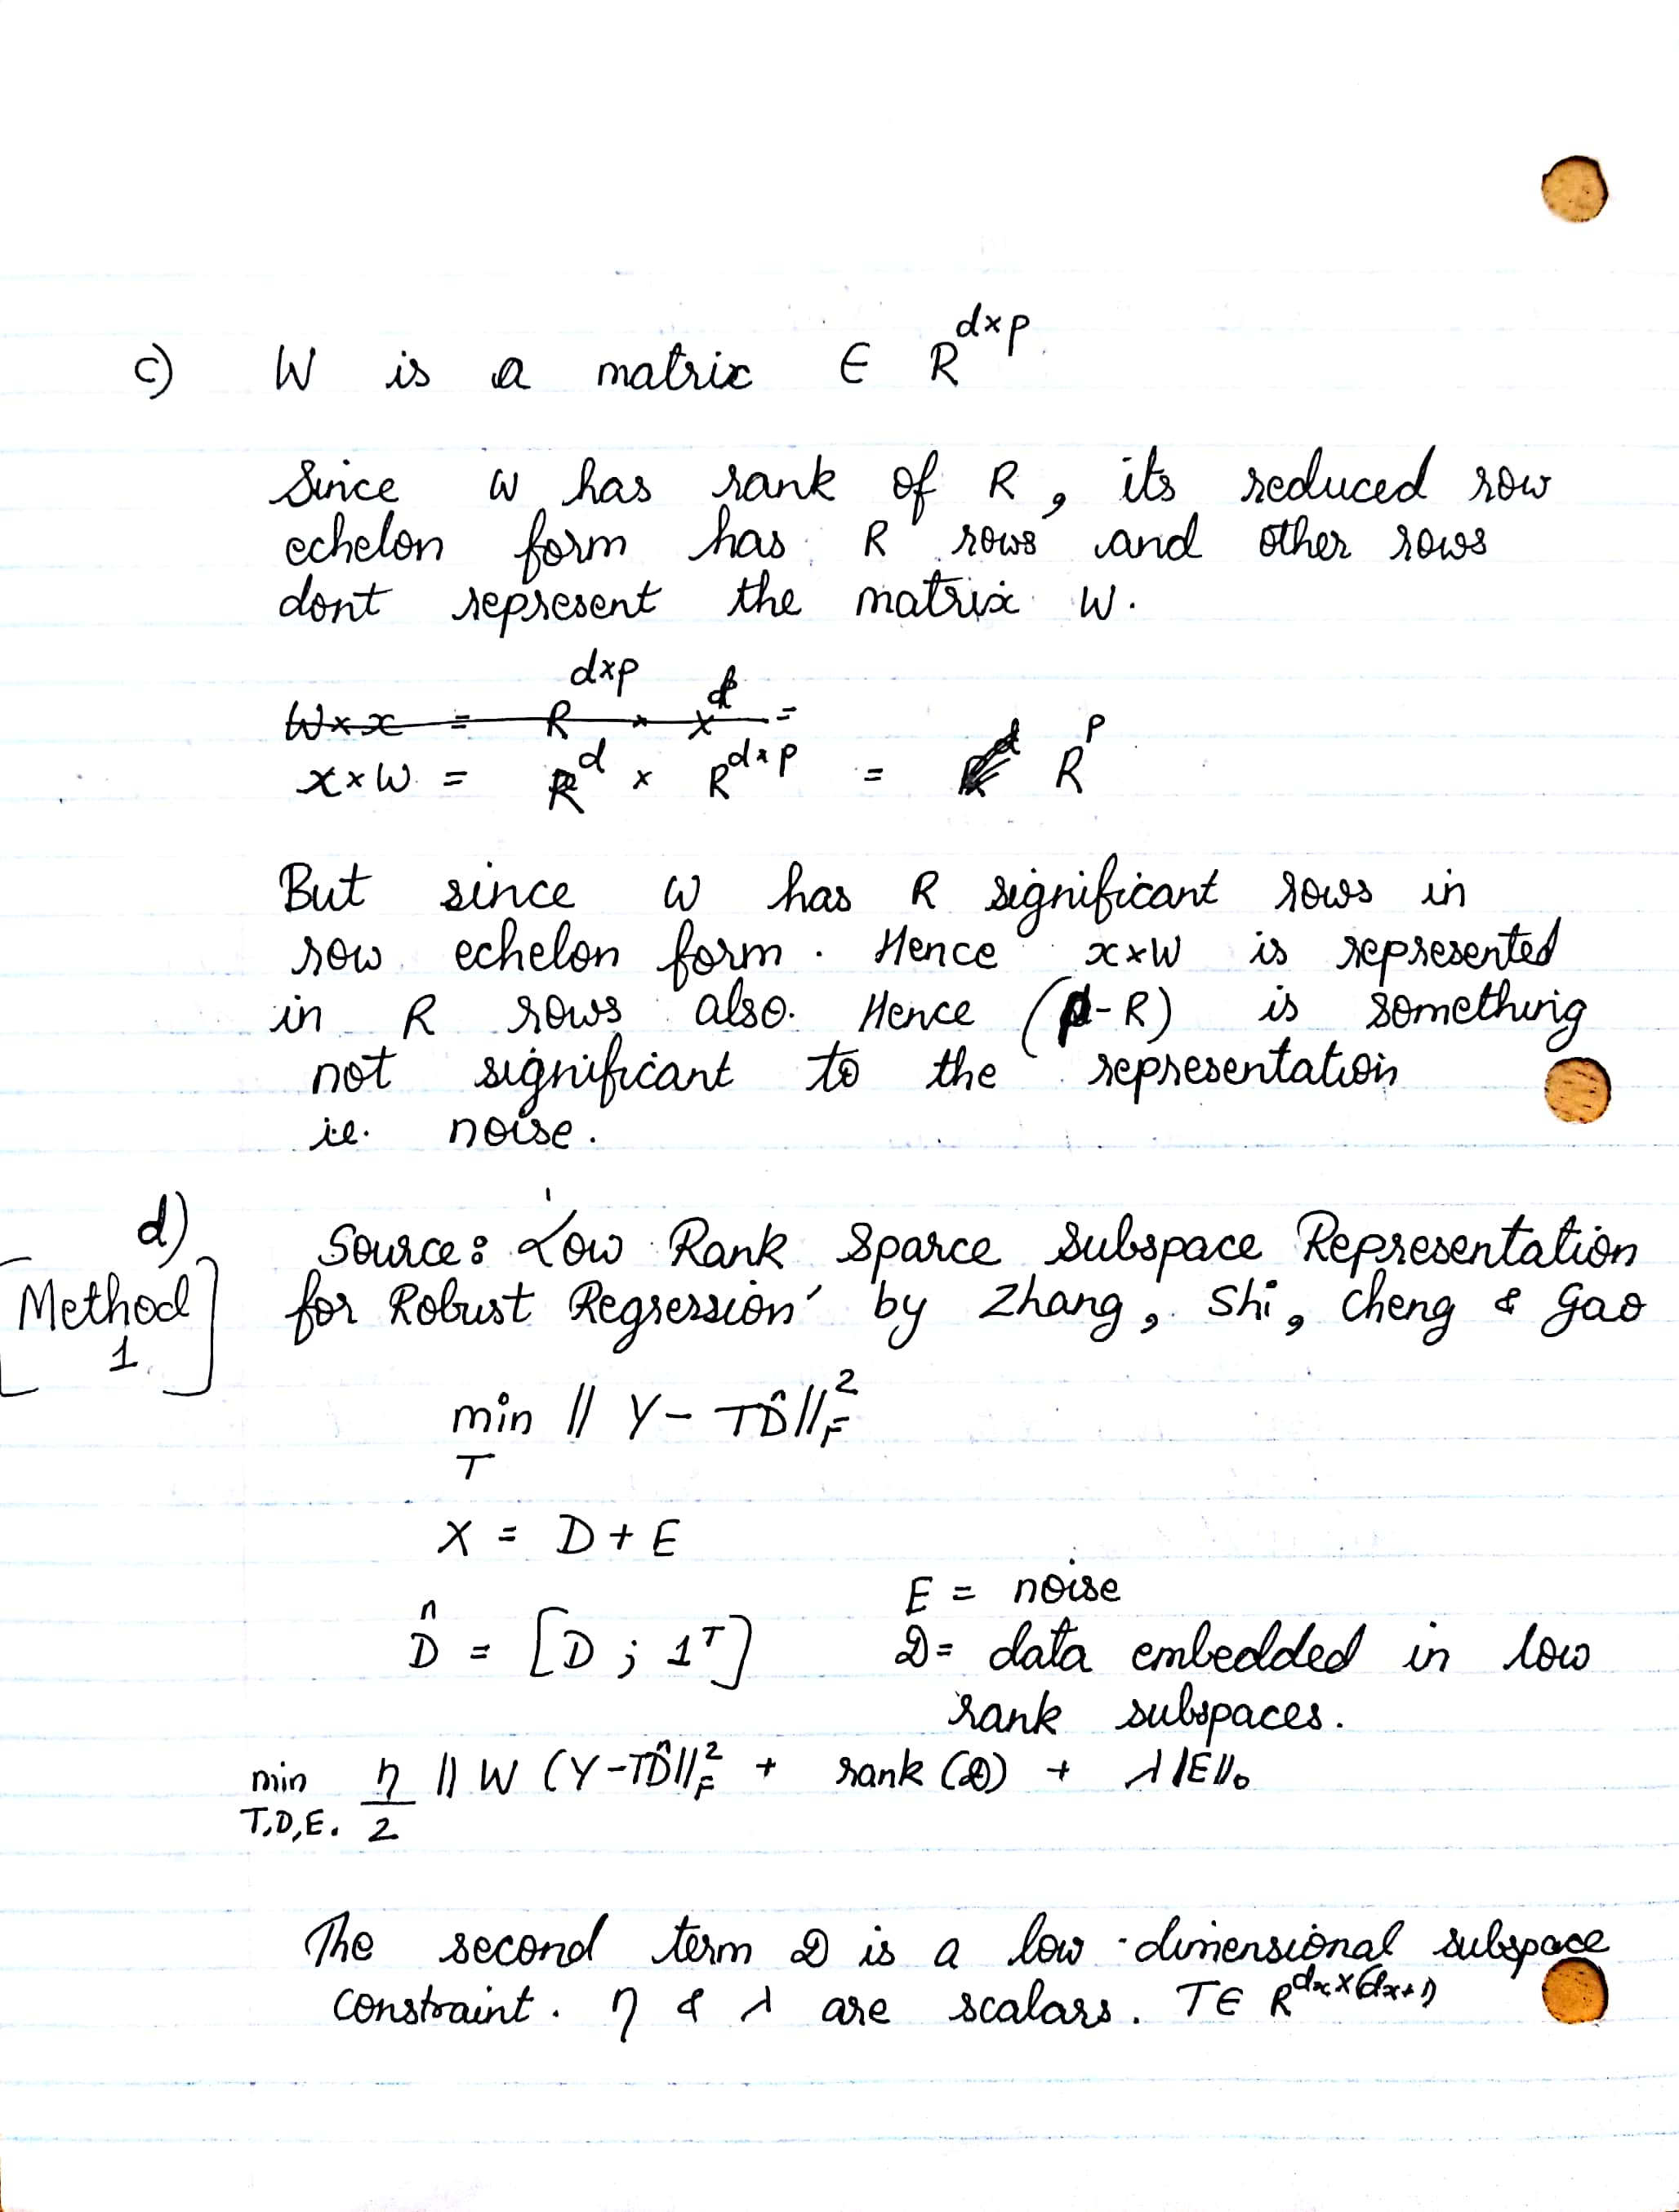 c) W is a matrix ∈ R^{d×p}
Since W has rank of R, its reduced row
echelon form has R rows and other rows
dont represent the matrix W.
W×x = R^{d×p} × x^d =
x×W = R^d × R^{d×p} = R^p
But since W has R significant rows in
row echelon form. Hence x×W is represented
in R rows also. Hence (p-R) is something
not significant to the representation
i.e. noise.
d) Source: 'Low Rank Sparce Subspace Representation
[Method 1] for Robust Regression' by Zhang, Shi, Cheng & Gao
min_T || Y - TD̂ ||_F^2
X = D + E
E = noise
D̂ = [D ; 1^T] D = data embedded in low
rank subspaces.
min_{T,D,E.} η/2 || W (Y-TD̂||_F^2 + rank (D) + λ||E||_0
The second term D is a low-dimensional subspace
constraint. η & λ are scalars. T∈ R^{dx×(dx+1)}